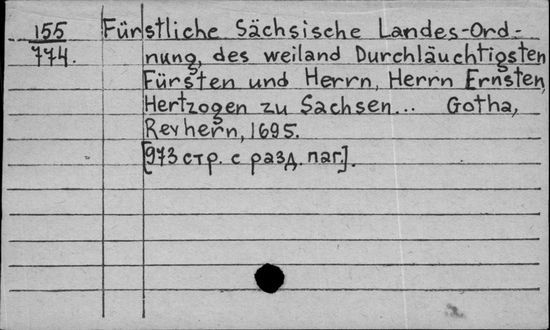 155 Fürstliche Sächsische Landes-Ord-
774. nung, des weiland Durchläuchtigsten
Fürsten und Herrn, Herrn Ernsten,
Hertzogen zu Sachsen... Gotha,
Reyhern, 1695.
[973 стр. с разд. паг.].